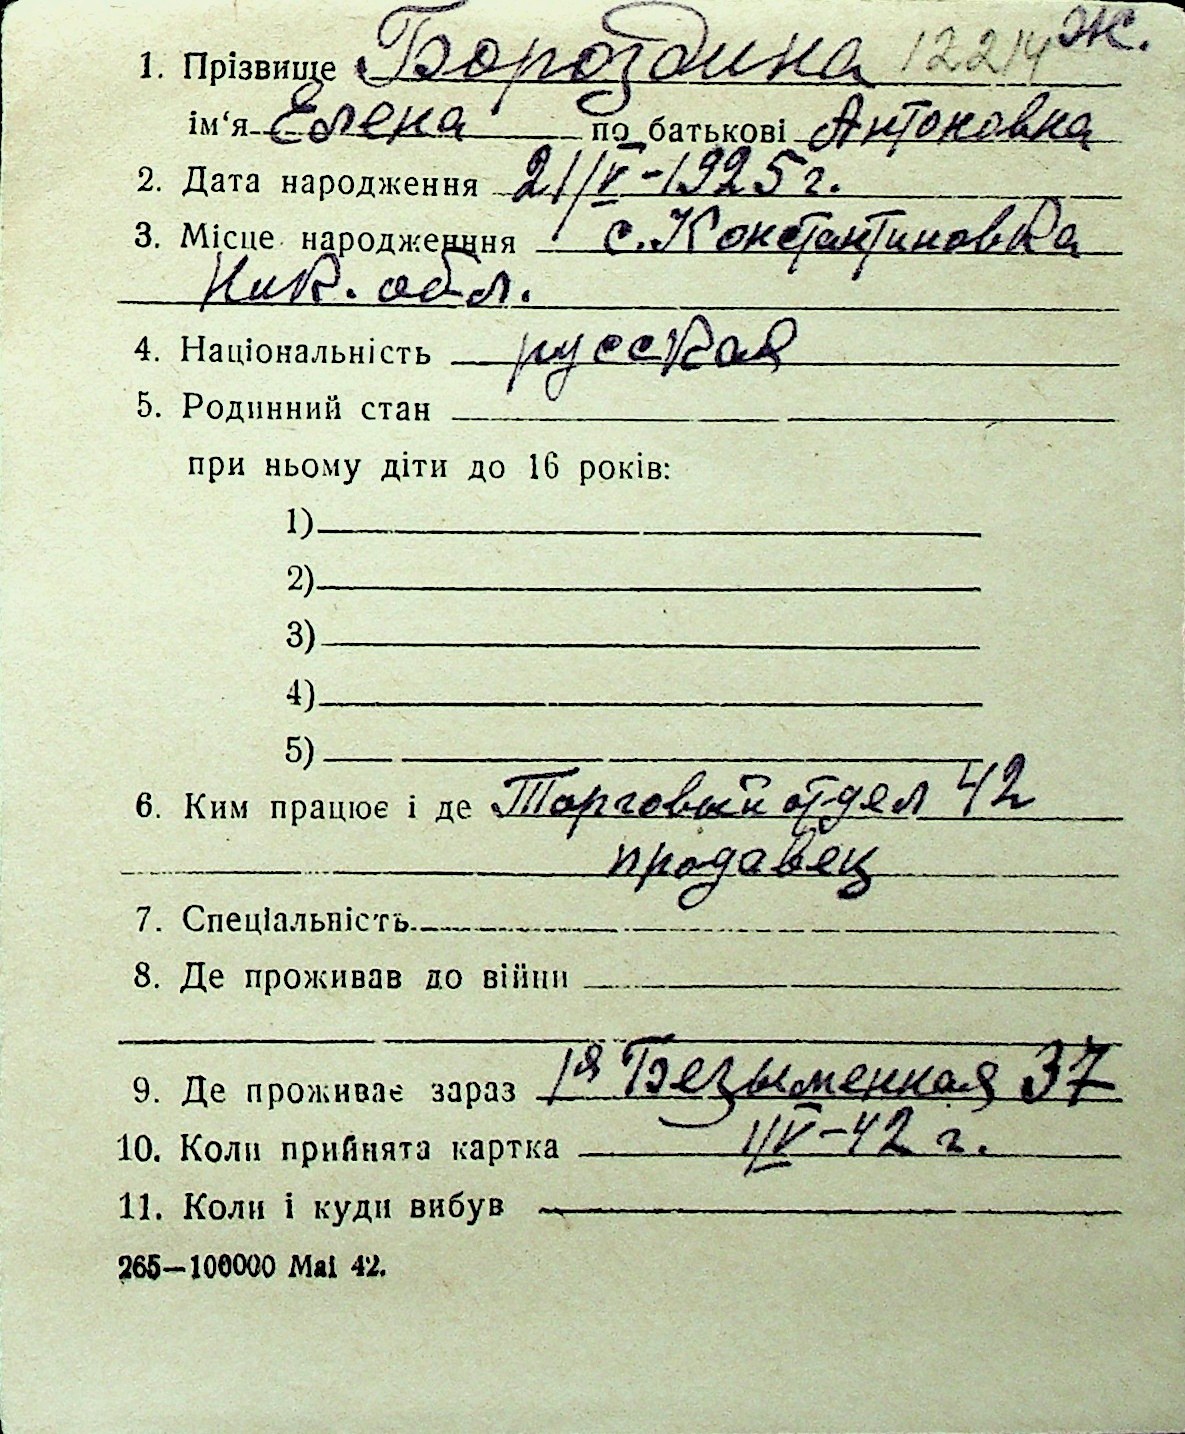 1. Прізвище Бороздина 12214 Ж.
ім‘я Елена по батькові Антоновна
2. Дата народження 21/V-1925 г.
3. Місце народженння с. Константиновка
Ник. обл.
4. Національність русская
5. Родинний стан
при ньому діти до 16 років:
1)
2)
3)
4)
5)
6. Ким працює і де Торговый отдел 42
продавец
7. Спеціальність
8. Де проживав до війни
9. Де проживає зараз 1я Безыменная 37
10. Коли прийнята картка 1/V-42 г.
11. Коли і куди вибув
265—100000 Mai 42.